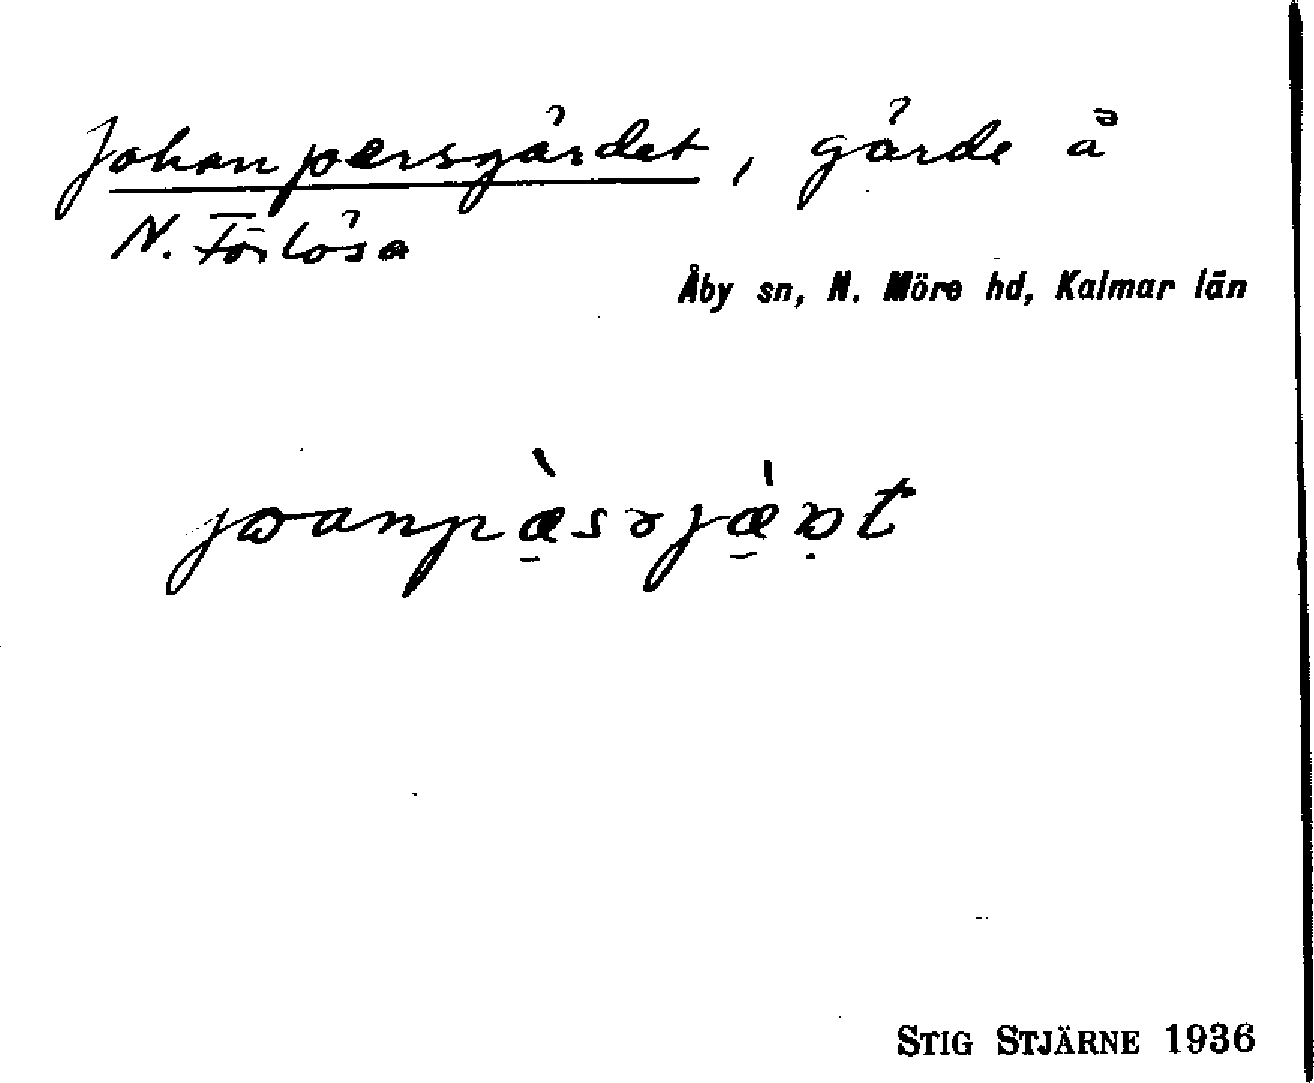 Johanpersgärdet, gärde å
N. Förlösa
Åby sn, N. Möre hd, Kalmar län
STIG STJÄRNE 1936